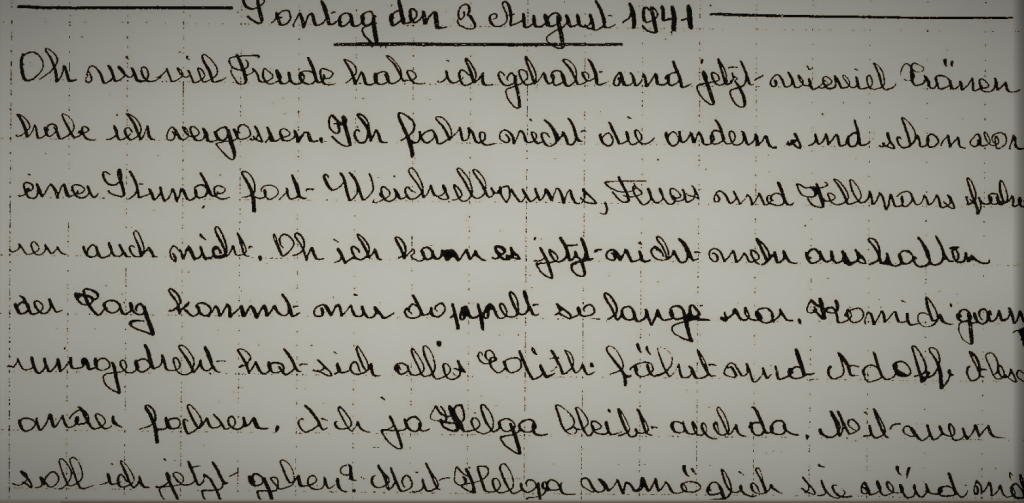 Sontag den 3 August 1941
Oh wie viel Freude habe ich gehabt und jetzt wieviel Tränen
habe ich vergossen. Ich fahre nicht die andern sind schon vor
einer Stunde fort Weichselbaums, Feuer und Fellmans fah
ren auch nicht. Oh ich kann es jetzt nicht mehr aushalten
der Tag kommt mir doppelt so lange vor. Komich ganz
umgedreht hat sich alles Edith fährt und Adolf, Alex
ander fahren. Ach ja Helga bleibt auch da. Mit wem
soll ich jetzt gehen? Mit Helga unmöglich sie wird